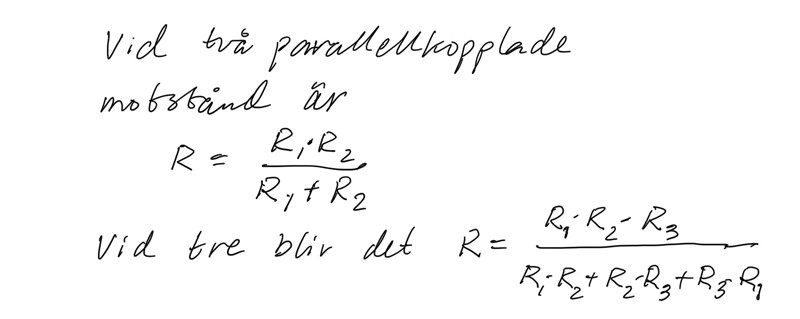 Vid två parallellkopplade
motstånd är
R = \frac{R_1 \cdot R_2}{R_1 + R_2}
Vid tre blir det R = \frac{R_1 \cdot R_2 \cdot R_3}{R_1 \cdot R_2 + R_2 \cdot R_3 + R_3 \cdot R_1}